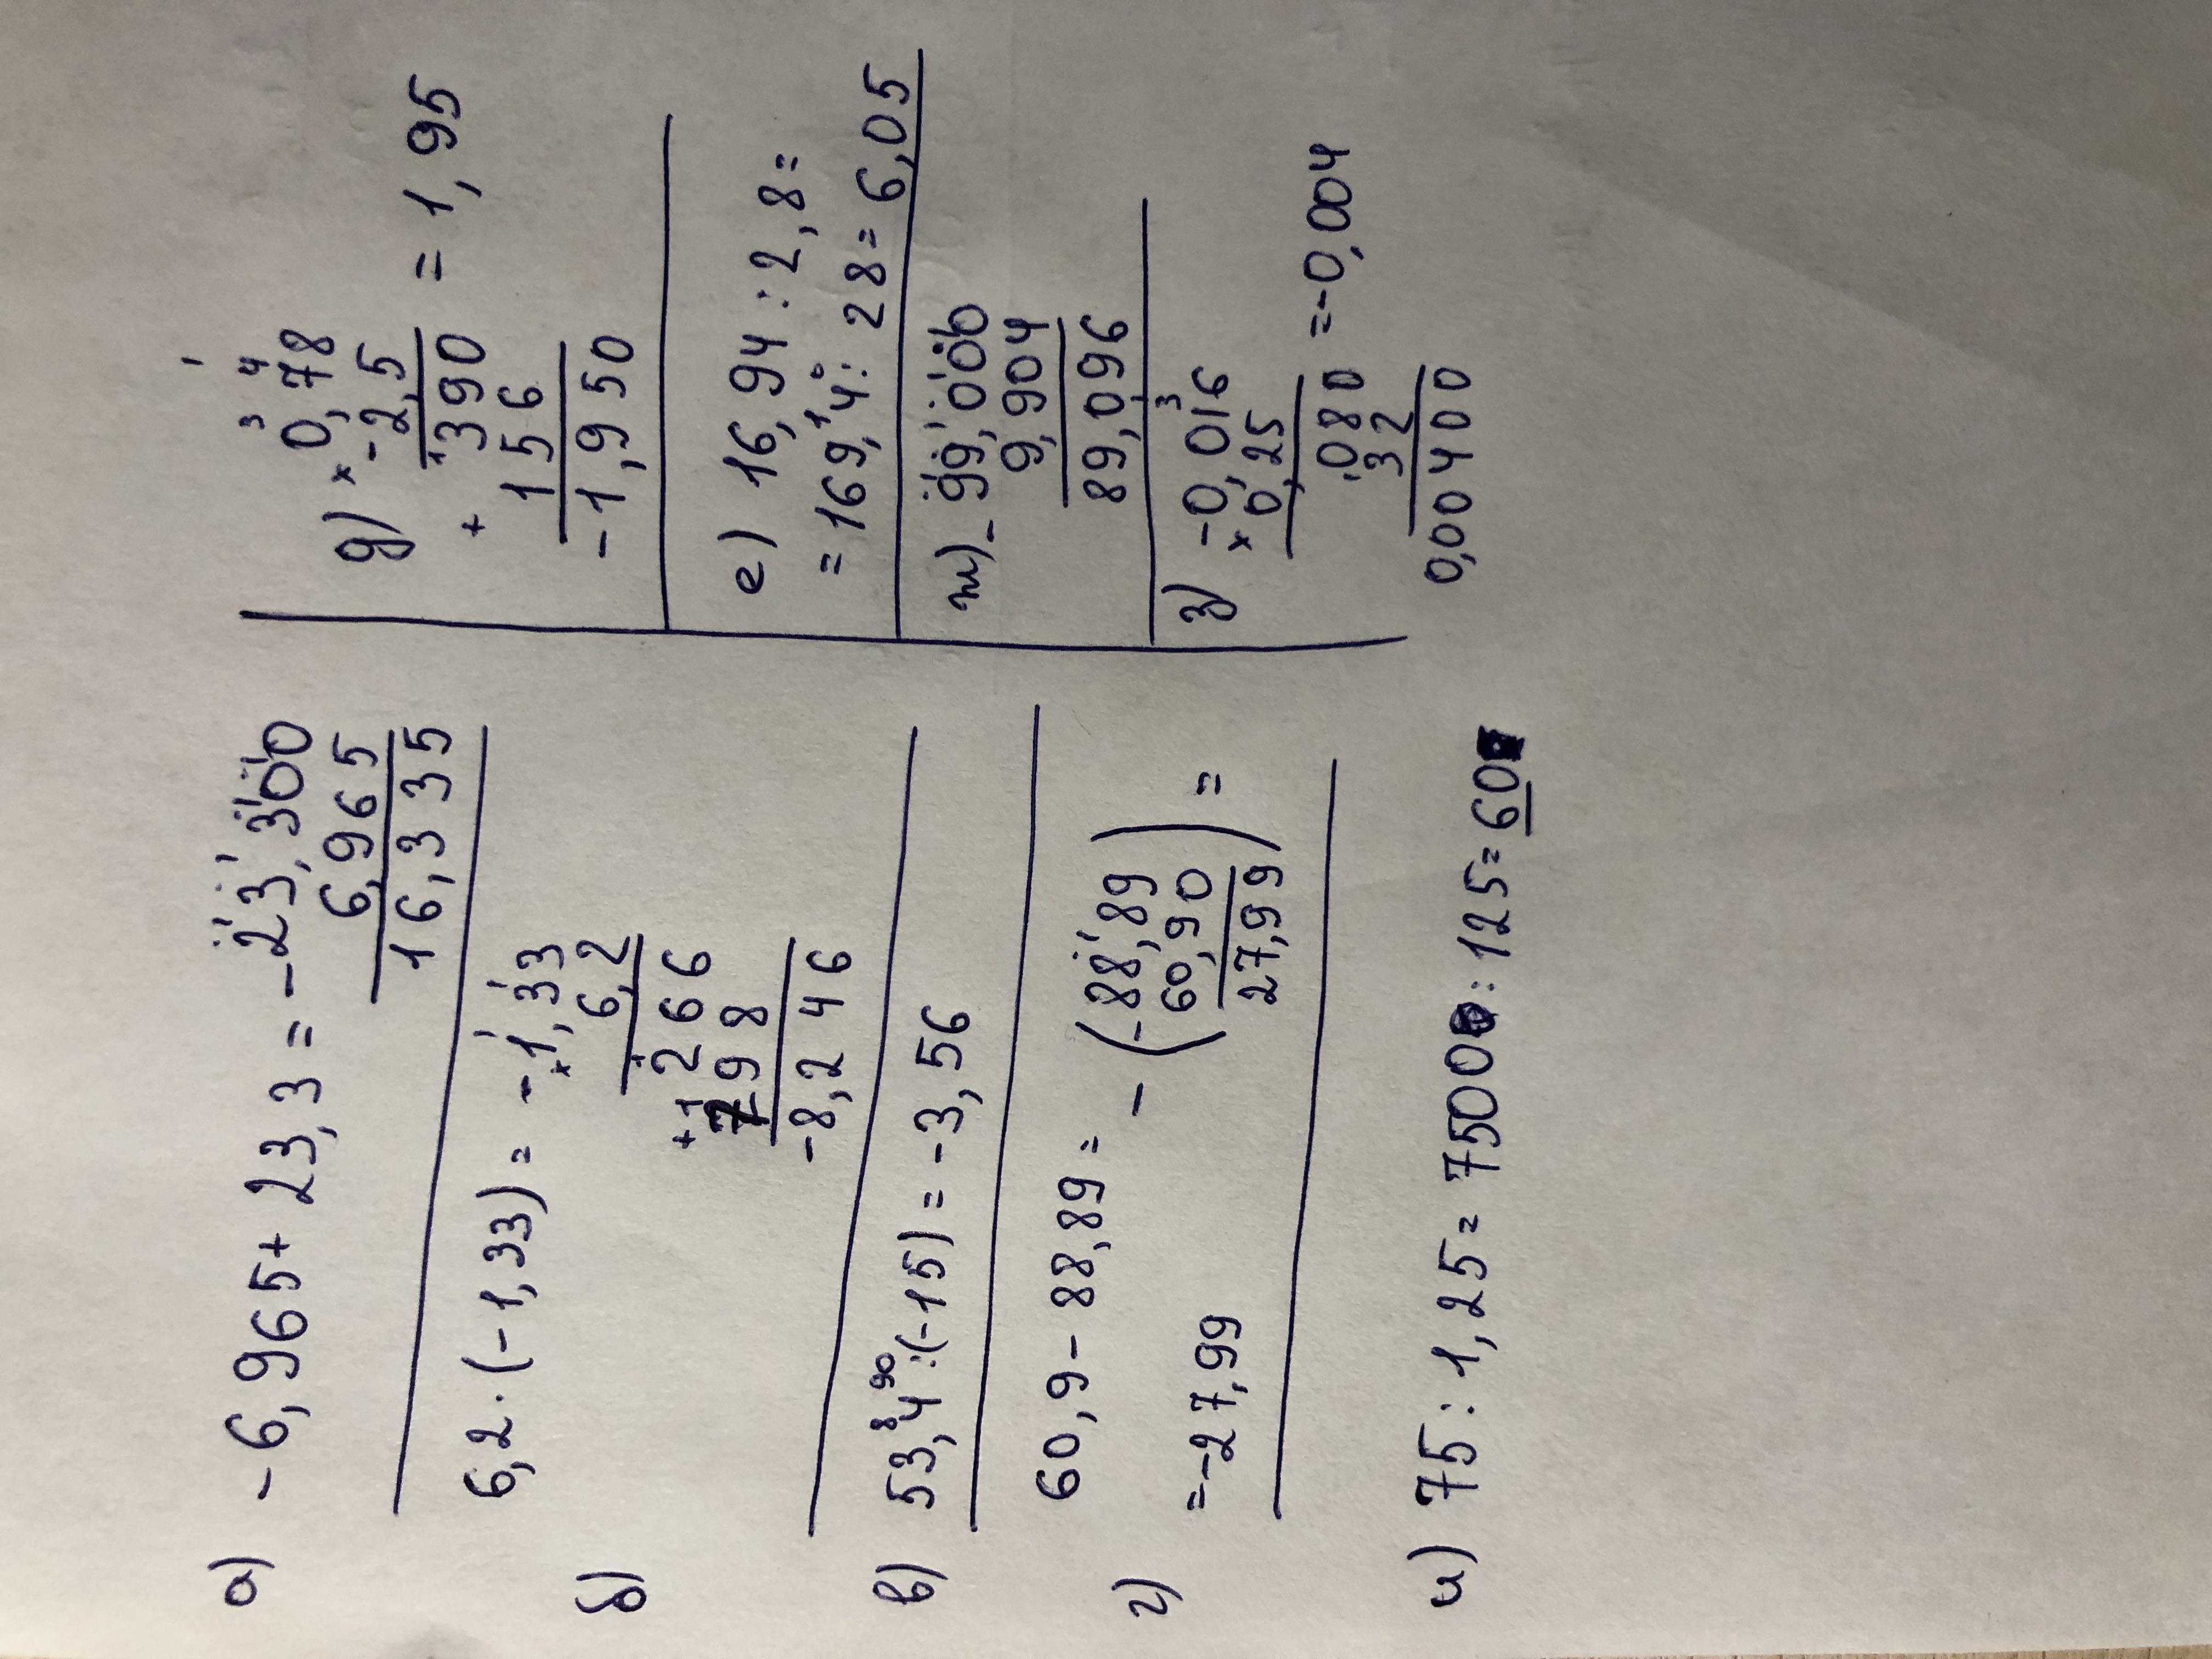 а) -6,965+ 23,3 = -23,300
6,965
16,335
б) 6,2·(-1,33) = -1,33
× 6,2
266
+ 798
-8,246
в) 53,4:(-15) = -3,56
г) 60,9-88,89= -(-88,89
60,90) =
27,99
=-27,99
и) 75:1,25=7500:125=60
д) × 0,78
-2,5
390 = 1,95
+ 156
-1,950
е) 16,94:2,8=
=169,4:28=6,05
ж) -99,000
9,904
89,096
з) × -0,016
0,25
080 =-0,004
32
0,00400